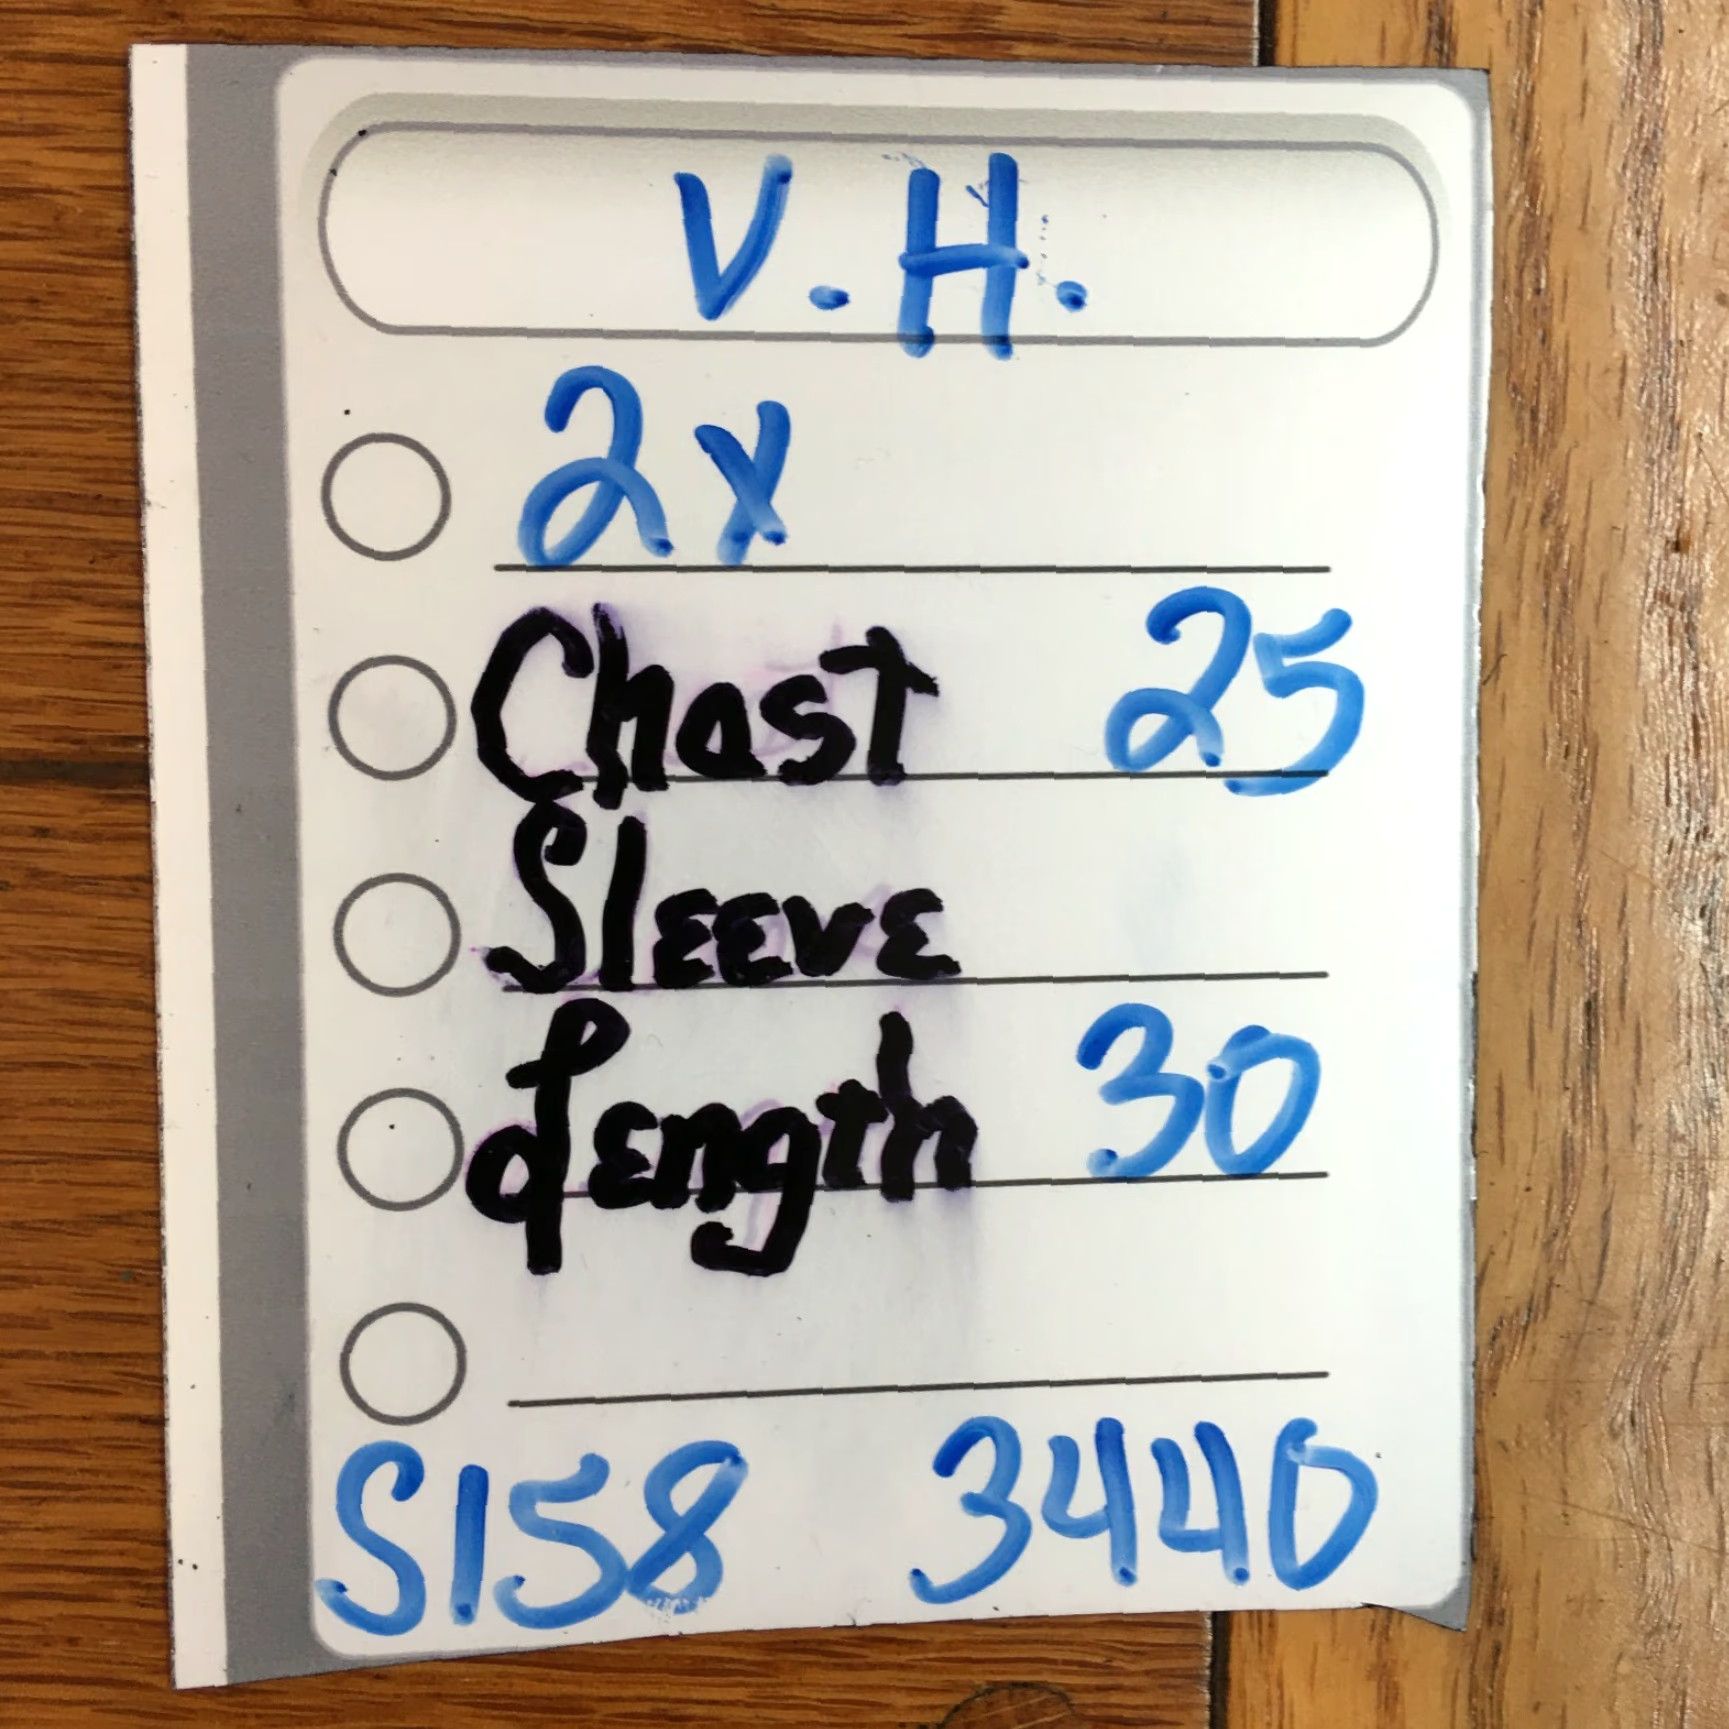 V.H.
2x
Chast 25
Sleeve
Length 30
S158 3440